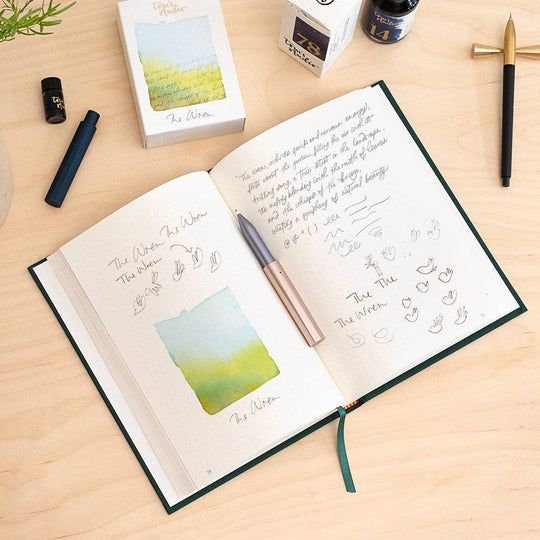 Tom's
Studio
The Wren
Tom's
Studio
78
14
The Wren The Wren
The Wren
The Wren
78
The wren, with its quick and nervous energy,
flits about the garden, filling the air with its
trilling song, a true artist in the landscape,
the melody blending with the rustle of leaves
and the whisper of the breeze,
creating a symphony of natural beauty
@ & * ( )
The The
The Wren